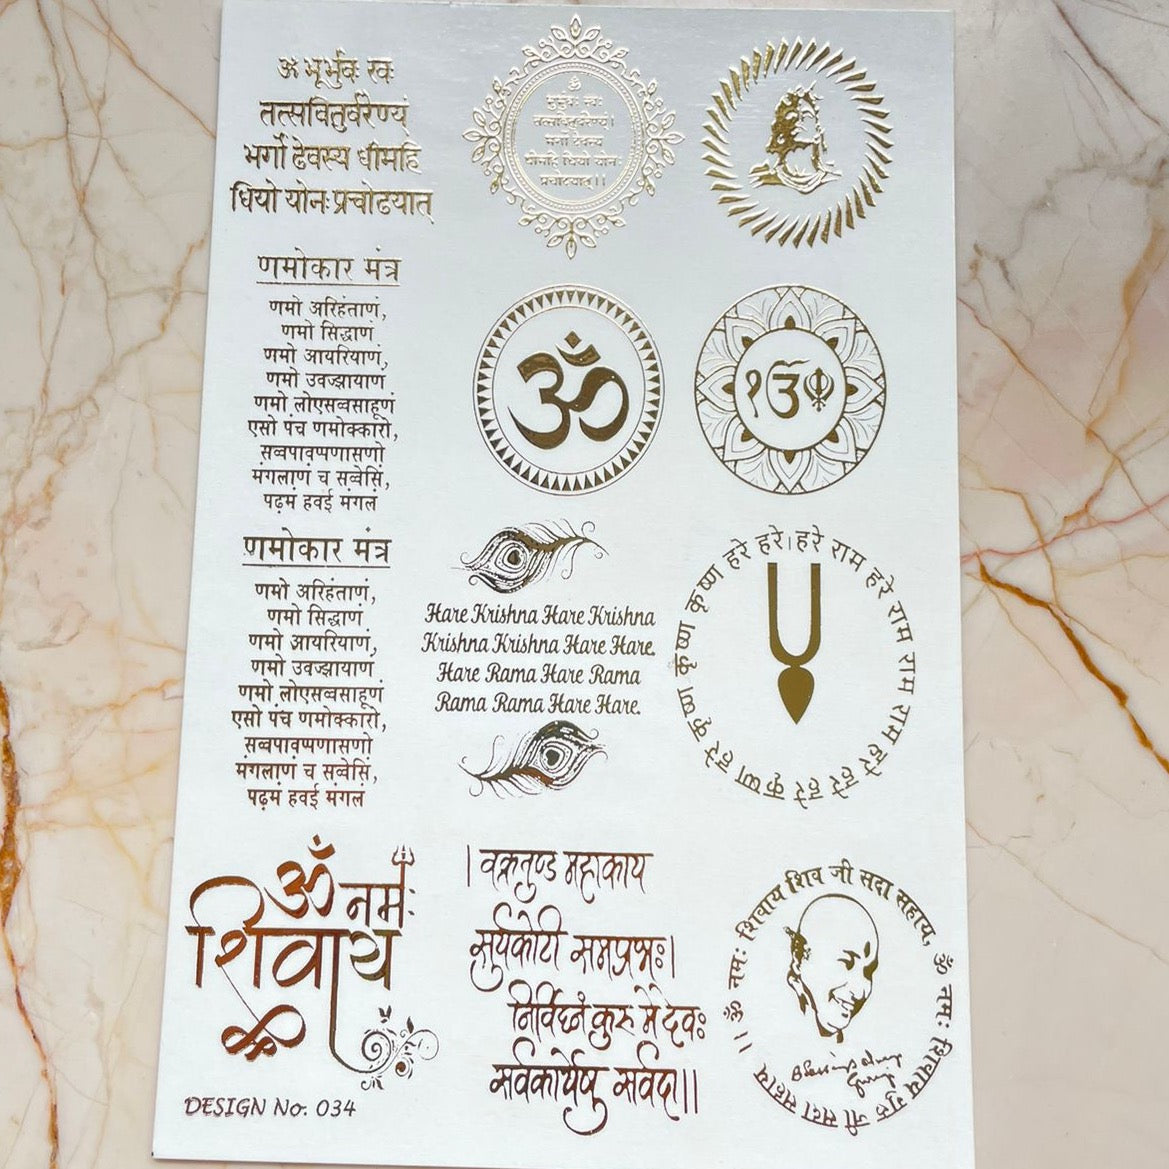 ॐ भूर्भुवः स्वः
तत्सवितुर्वरेण्यं
भर्गो देवस्य धीमहि
धियो योनः प्रचोदयात्
ॐ
भूर्भुवः स्वः
तत्सवितुर्वरेण्यं।
भर्गो देवस्य
धीमहि धियो योनः
प्रचोदयात्।।
णमोकार मंत्र
णमो अरिहंताणं,
णमो सिद्धाणं
णमो आयरियाणं,
णमो उवज्झायाणं
णमो लोएसव्वसाहूणं
एसो पंच णमोक्कारो,
सव्वपावप्पणासणो
मंगलाणं च सव्वेसिं,
पढ़मं हवई मंगलं
ॐ
ੴ
णमोकार मंत्र
णमो अरिहंताणं,
णमो सिद्धाणं
णमो आयरियाणं,
णमो उवज्झायाणं
णमो लोएसव्वसाहूणं
एसो पंच णमोक्कारो,
सव्वपावप्पणासणो
मंगलाणं च सव्वेसिं,
पढ़मं हवई मंगलं
Hare Krishna Hare Krishna
Krishna Krishna Hare Hare.
Hare Rama Hare Rama
Rama Rama Hare Hare.
हरे कृष्ण हरे कृष्ण कृष्ण कृष्ण हरे हरे। हरे राम हरे राम राम राम हरे हरे
ॐ नमः
शिवाय
। वक्रतुण्ड महाकाय
सुर्यकोटी समप्रभः।
निर्विघ्नं कुरु मे देवः
सर्वकार्येषु सर्वदा।।
ॐ नमः शिवाय शिव जी सदा सहाय, ॐ नमः शिवाय गुरु जी सदा सहाय ।।
DESIGN No. 034